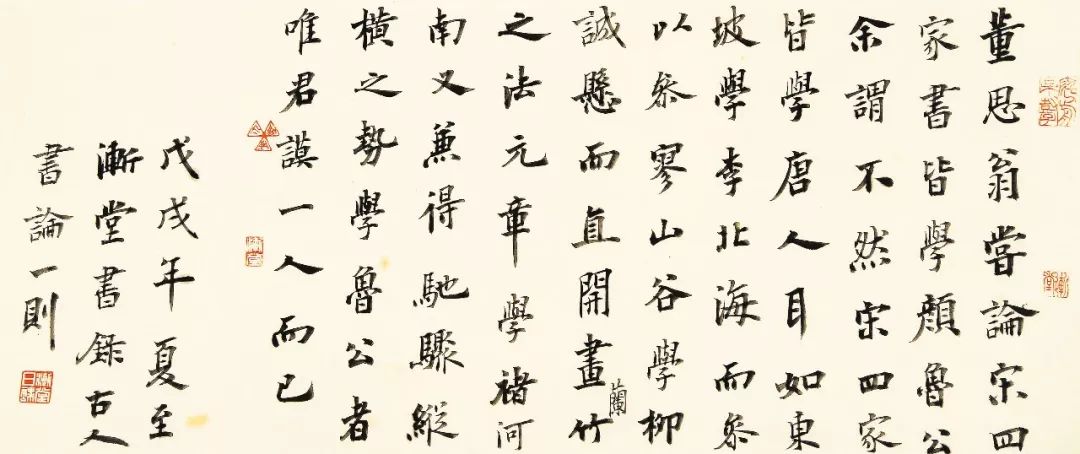 董思翁嘗論宋四
家書皆學顔魯公
余謂不然宋四家
皆學唐人耳如東
坡學李北海而叅
以叅寥山谷學柳
誠懸而直開畫蘭竹
之法元章學褚河
南又兼得馳驟縱
橫之勢學魯公者
唯君謨一人而已
戊戌年夏至
漸堂書錄古人
書論一則